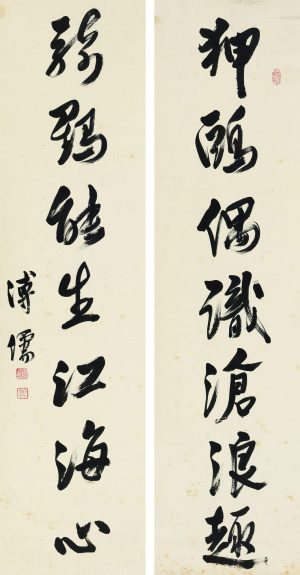 狎鷗偶識滄浪趣
騎鶴能生江海心
溥儒